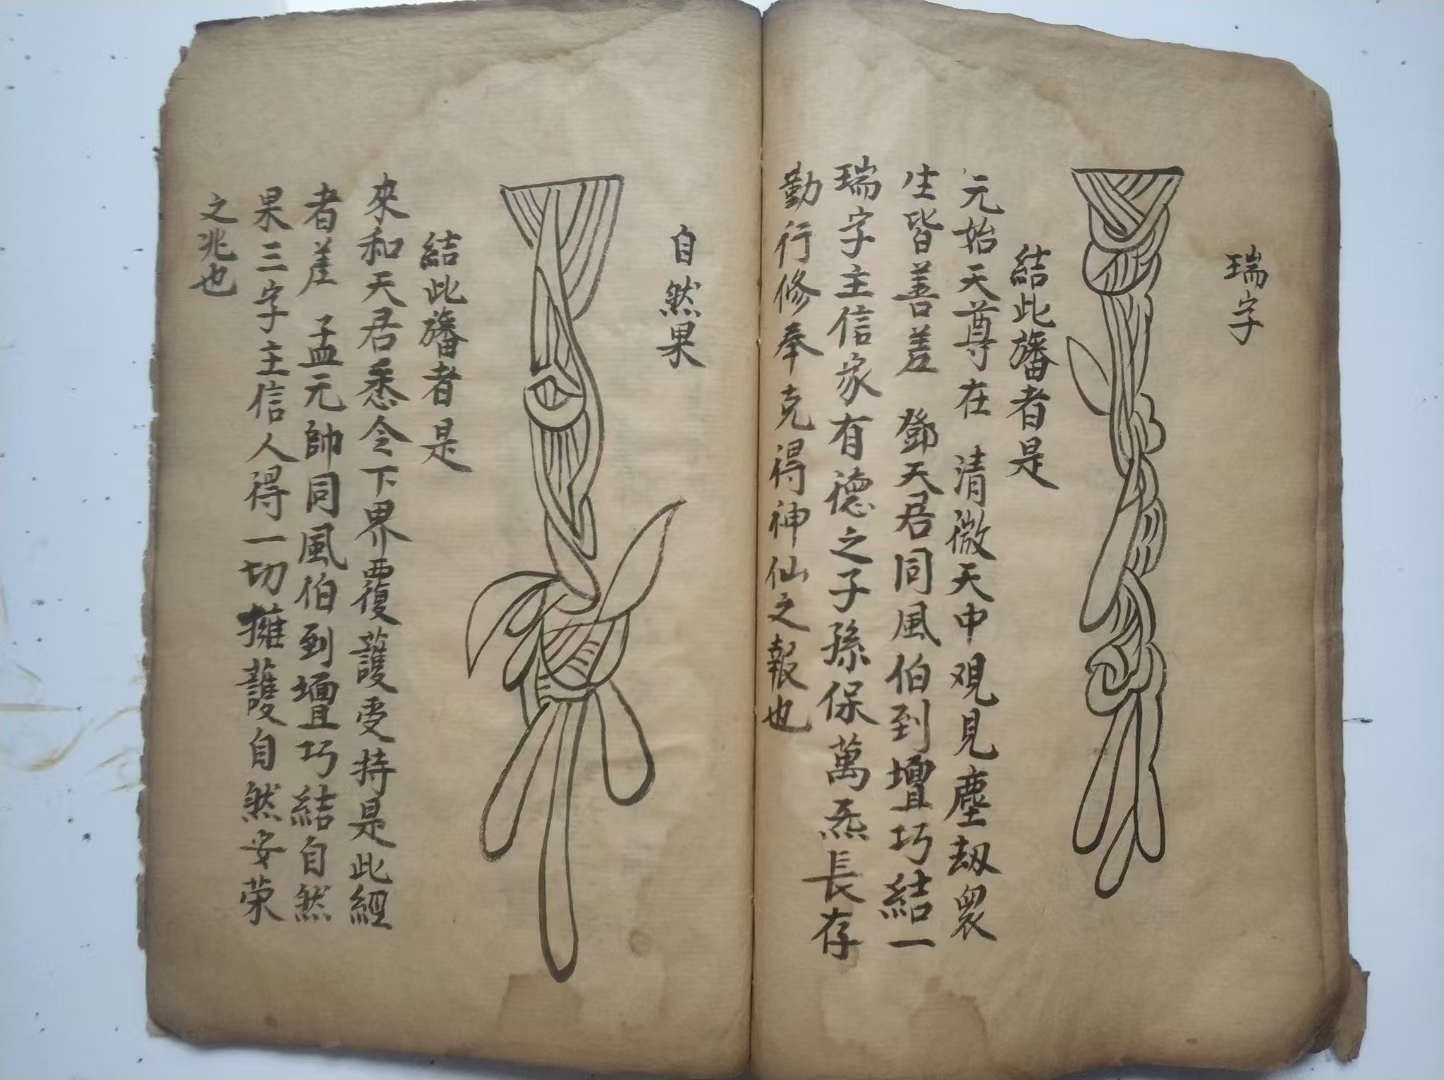 瑞字
結此旛者是
元始天尊在 清微天中观見塵劫衆
生皆善差 鄧天君同風伯到壇巧結一
瑞字主信家有德之子孫保萬炁長存
勤行修奉克得神仙之報也
自然果
結此旛者是
來和天君悉令下界覆護受持是此經
者差 孟元帥同風伯到壇巧結自然
果三字主信人得一切擁護自然安荣
之兆也